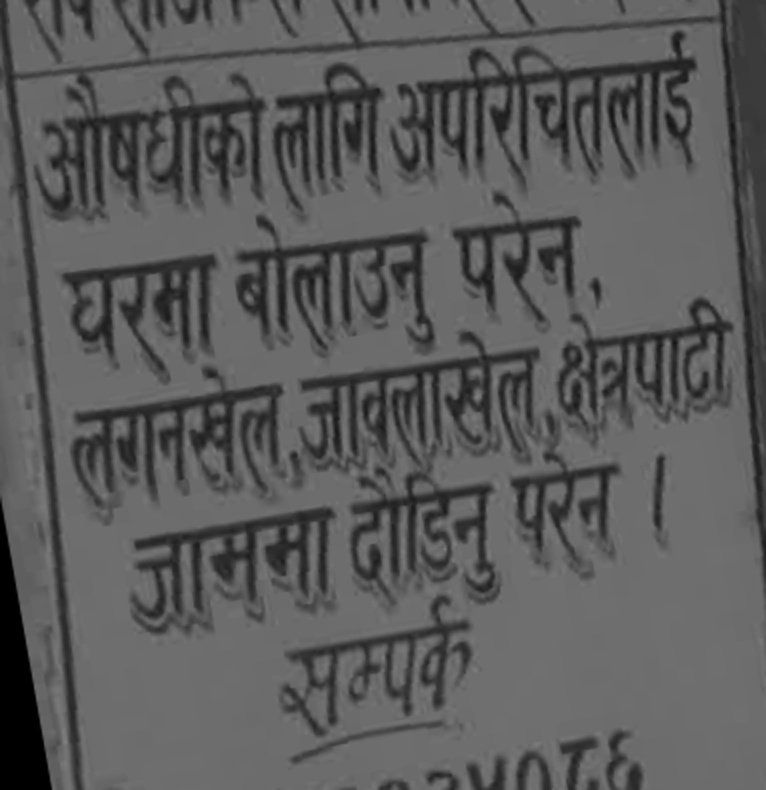 औषधीको लागि अपरिचितलाई
घरमा बोलाउनु परेन,
लगनखेल, जावलाखेल, क्षेत्रपाटी
जाममा दौडिनु परेन ।
सम्पर्क